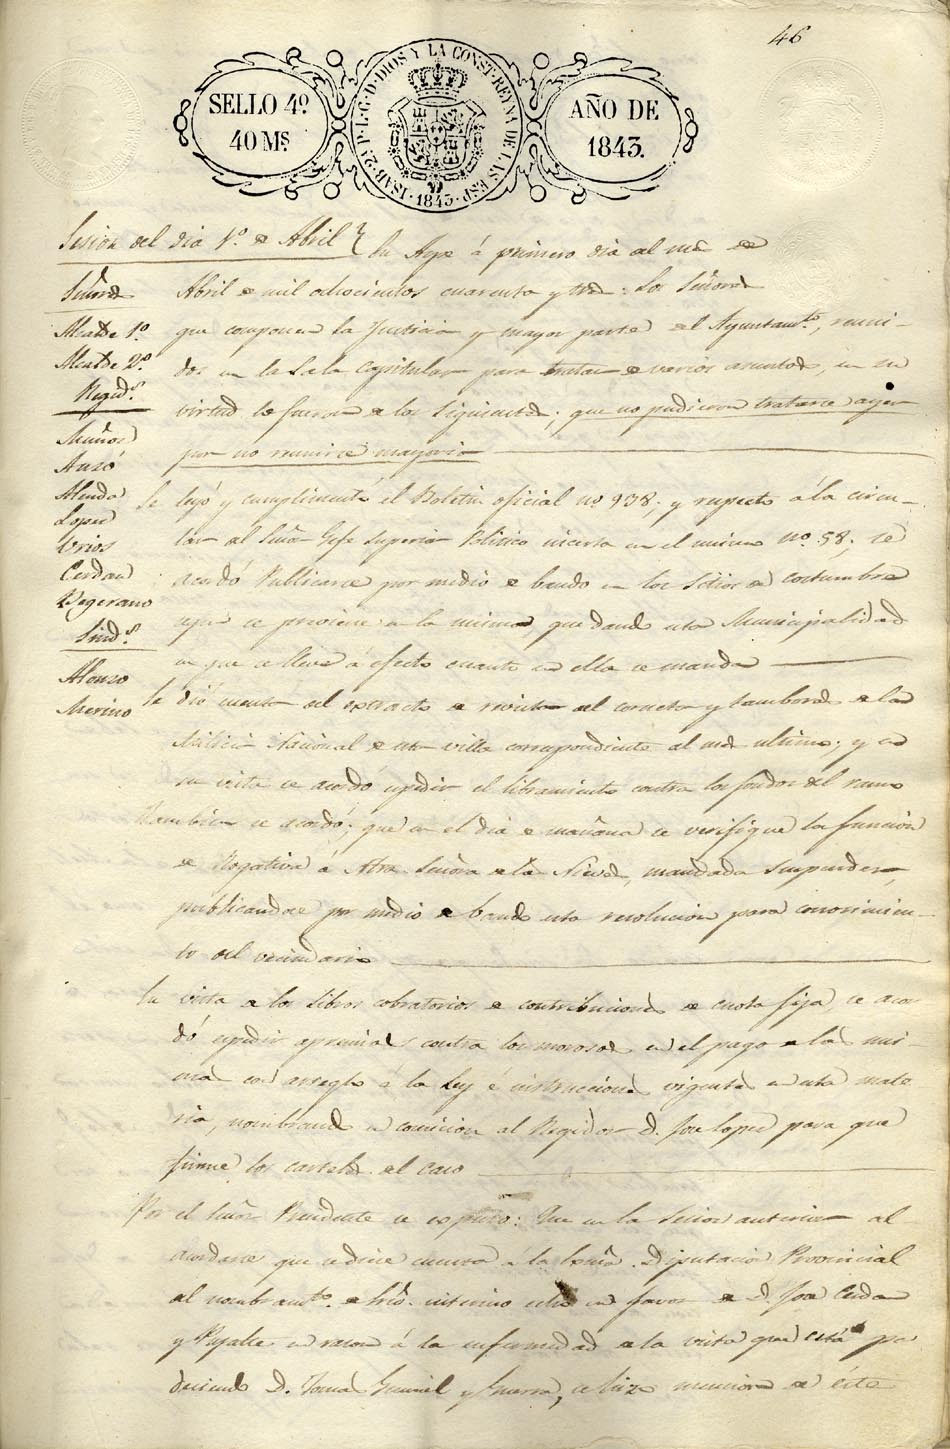 46
SELLO 4º.
40 Mˢ.
ISAB. 2ª. P. L. G. D. DIOS Y LA CONST. REYNA DE LAS ESP.
1843.
AÑO DE
1843.
Sesion del dia 1º. de Abril
Señores
Alcalde 1º.
Alcalde 2º.
Regidˢ.
Muñoz
Auzó
Alenda
Lopez
Urios
Cerdan
Pegerano
Sindˢ.
Alonso
Merino
En Aspe á primero dia del mes de
Abril de mil ochocientos cuarenta y tres: Los Señores
que componen la Justicia y mayor parte del Ayuntamtº, reuni-
dos en la Sala Capitular para tratar de varios asuntos, en su
virtud lo fueron de los siguientes, que no pudieron tratarse ayer
por no reunirse mayoria
Se leyó y cumplimentó el Boletin oficial nº. 938; y respecto á la circu-
lar del Señor Gefe Superior Politico incerta en el mismo nº. 58, se
acordó Publicarse por medio de bando en los Sitios de costumbre
segun se previene en la misma, quedando esta Municipalidad
en que se lleve á efecto cuanto en ella se manda
Se dió cuenta del extracto de revista del corneta y tambores de la
Milicia Nacional de esta villa correspondiente al mes ultimo; y en
su vista se acordó expedir el libramiento contra los fondos del ramo
Tambien se acordó; que en el dia de mañana se verifique la funcion
de Rogativa á Ntra. Señora de las Nieves, mandada suspender,
publicandose por medio de bando esta resolucion para conocimien-
to del vecindario
En vista de los Libros cobratorios de contribuciones de cuota fija, se acor-
dó expedir apremios contra los morosos en el pago de las mis-
mas con arreglo á la Ley é instrucciones vigentes en esta mate-
ria, nombrando en comision al Regidor D. Jose Lopez para que
firme los carteles del caso
Por el Señor Presidente se expuso: Que en la Sesion anterior al
acordarse que se diese cuenta á la Exma. Diputacion Provincial
del nombramtº. de Srio. interino echo en favor de D. Jose Cerdan
y en razon á la enfermedad de la vista que está pa
deciendo D. Tomas Gumiel y Guerra, se hizo mencion de éste